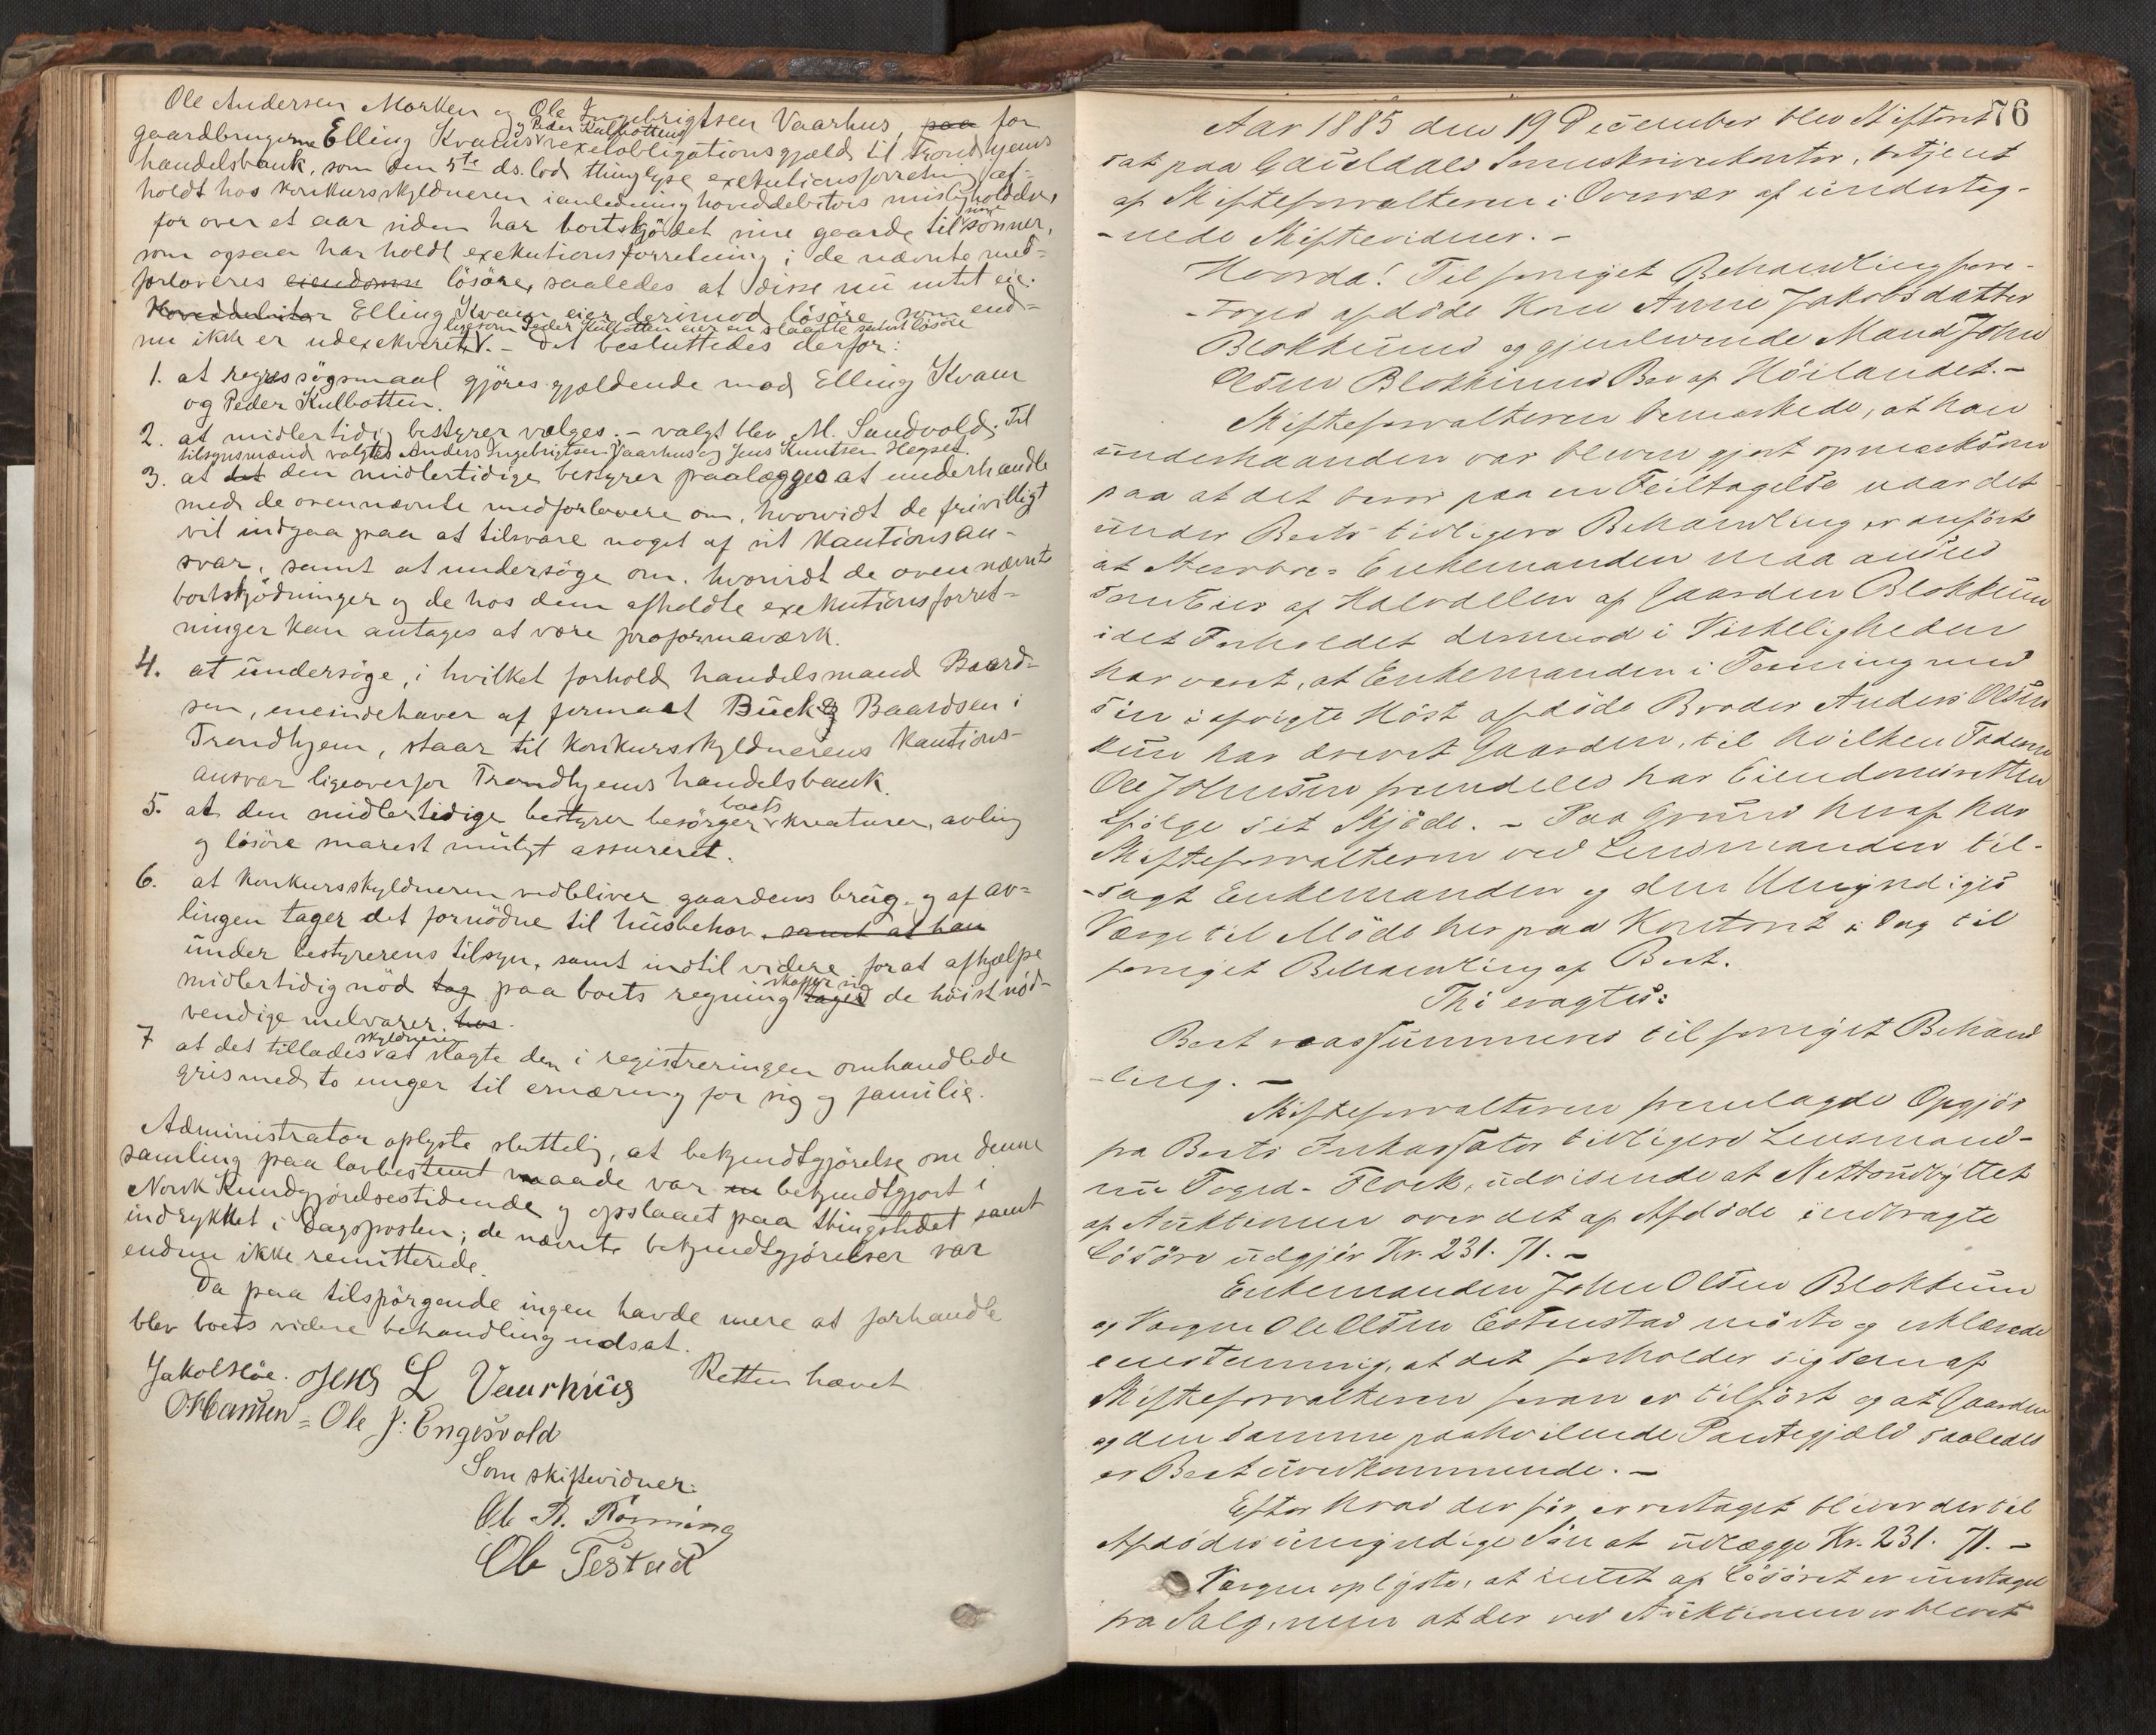 Ole Andersen Morken og Ole Ingebrigtsen Vaarhus, paa for
og Peder Kulbottens
gaardbrugerne Elling Kvams vexelobligationsgjæld til Trondhjems
handelsbank, som den 5te ds. lod thinglyse exekutionsforretning af-
holdt hos konkursskyldneren i anledning hoveddebitors misligholdelse,
for over et aar siden har bortskjödet sine gaarde til sine sönner,
som ogsaa har holdt exekutionsforretning i de nævnte med-
forloveres eiendomme lösöre, saaledes at disse nu intet eie.
Hoveddebitor Elling Kvam eier derimod lösöre som end-
ligesom Peder Kulbotten eier en slaatte samt lösöre
nu ikke er udexekveret. - Det besluttedes derfor:
1. at regressögsmaal gjöres gjældende mod Elling Kvam
og Peder Kulbotten.
2. at midlertidig bestyrer vælges. - valgt blev M. Sandvold. Til
tilsynsmænd valgtes Anders Ingebrigtsen Vaarhus og Jens Knutsen Hegset.
3. at det den midlertidige bestyrer paalægges at underhandle
med de ovennævnte medforlovere om, hvorvidt de frivilligt
vil indgaa paa at tilsvare noget af sit kautionsan-
svar, samt at undersöge om, hvorvidt de ovennævnte
bortskjödninger og de hos dem afholdte exekutionsforret-
ninger kan antages at være proformaværk.
4. at undersöge, i hvilket forhold handelsmand Baard-
sen, eneindehaver af firmaet Buck & Baardsen i
Trondhjem, staar til konkursskyldnerens kautions-
ansvar ligeoverfor Trondhjems handelsbank.
5. at den midlertidige bestyrer besörger boets kreaturer, avling
og lösöre snarest muligt assureret.
6. at konkursskyldneren vedbliver gaardens brug og af av-
lingen tager det fornödne til husbehov, samt at han
under bestyrerens tilsyn, samt indtil videre for at afhjælpe
midlertidig nöd tag paa boets regning skaffer sig tages de höist nöd-
vendige melvarer. hos.
7 at det tillades skyldneren at slagte den i registreringen omhandlede
gris med to unger til ernæring for sig og familie.
Administrator oplyste sluttelig, at bekjendtgjörelse om denne
samling paa lovbestemt maade var en bekjendtgjort i
Norsk Kundgjörelsestidende og opslaaet paa thingstedet samt
indrykket i Dagsposten; de nævnte bekjendtgjörelser var
endnu ikke remitterede.
Da paa tilspörgende ingen havde mere at forhandle
blev boets videre behandling udsat.
Retten hævet
Jakob Höe. Jens L Vaarhus
O. Hansen = Ole J. Engesvold
Som skiftevidner:
Ole Rönning
Ole Testad
76
Aar 1885 den 19 December blev Skifteret
sat paa Gauldals Sorenskriverkontor, betjent
af Skifteforvalteren i Overvær af underteg-
-nede Skiftevidner. -
Hvorda! Til forniget Behandling fore-
-toges afdöde Kone Anne Jakobsdatter
Blokkums og gjenlevende Mand John
Olsen Blokkums Bo af Höilandet. -
Skifteforvalteren bemærkede, at han
underhaanden var bleven gjort opmærksom
paa at det beror paa en Feiltagelse naar det
under Boets tidligere Behandling er anfört
at Enkemanden maa ansees
som Eier af Halvdelen af Gaarden Blokkum
idet Forholdet derimod i Virkeligheden
har været, at Enkemanden i Forening med
sin i afvigte Höst afdöde Broder Anders Olsen
kun har drevet Gaarden, til hvilken Faderen
Ole Johnsen fremdeles har Eiendomsretten
ifölge sit Skjöde. - Paa Grund heraf har
Skifteforvalteren ved Lensmanden til-
-sagt Enkemanden og den Umyndiges
Værge til Möde her paa Kontoret i Dag til
forniget Behandling af Boet.
Thi eragtes:
Boet reassummeres til forniget Behand
-ling. -
Skifteforvalteren fremlagde Opgjör
fra Boets Inkassator tidligere Lensmand-
nu Foged - Floek, udvisende at Nettoudbyttet
af Auktionen over det af Afdöde indbragte
Lösöre udgjör Kr. 231. 71. -
Enkemanden John Olsen Blokkum
og Værgen Ole Olsen Estenstad mödte og erklærede
enstemmig, at det forholder sig som af
Skifteforvalteren foran er tilfört og at Gaarden
og den samme paahvilende Pantegjæld saaledes
er Boet uvedkommende. -
Efter hvad der för er vedtaget bliver der til
Afdödes umyndige Sön at udlægge Kr. 231. 71. -
Værgen oplyste, at intet af Lösöret er undtaget
fra Salg, men at der ved Auktionen er blevet